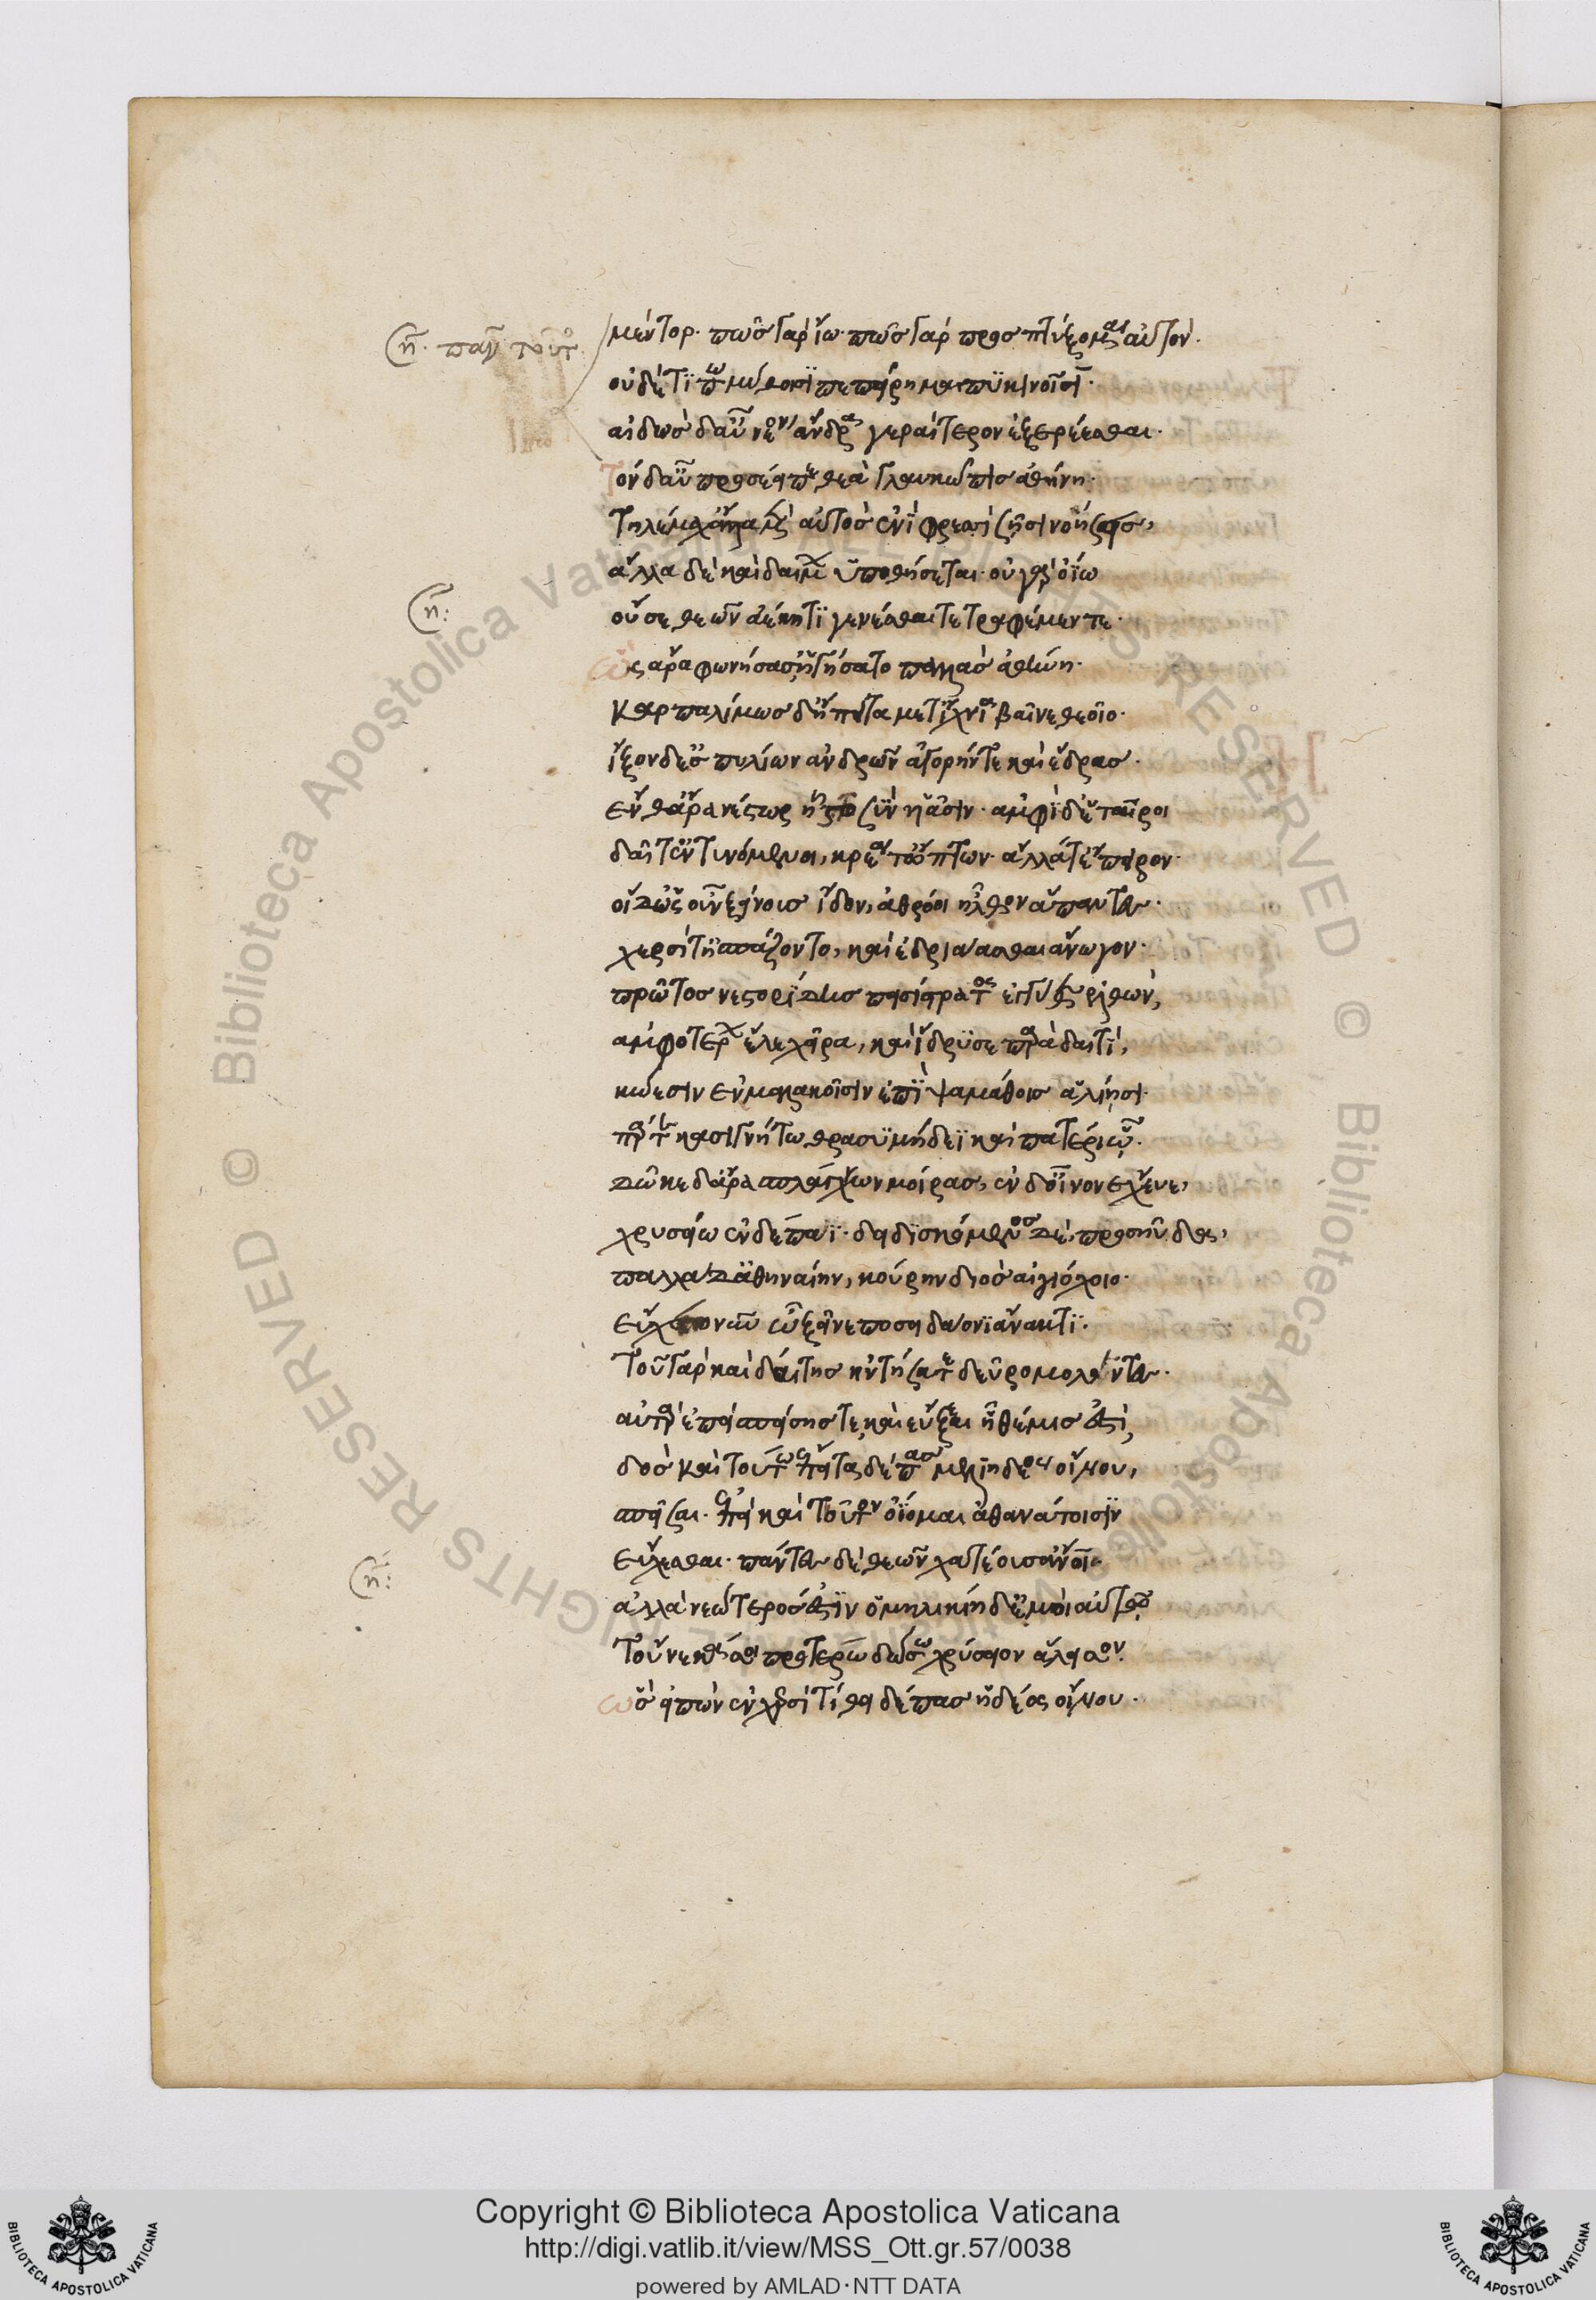 μέντορ. πῶς γὰρ ἴω. πῶς γὰρ προσπτύξομαι αὐτόν.
οὐδέ τί πω μύθοισι πεπείρημαι πυκινοῖσι.
αἰδὼς δ' αὖ νέον ἄνδρα γεραίτερον ἐξερέεσθαι.
τὸν δ' αὖ προσέειπε θεὰ γλαυκῶπις ἀθήνη.
τηλέμαχ' ἄλλα μὲν αὐτὸς ἐνὶ φρεσὶ σῇσι νοήσεις,
ἄλλα δὲ καὶ δαίμων ὑποθήσεται. οὐ γὰρ ὀΐω
οὔ σε θεῶν ἀέκητι γενέσθαι τε τραφέμεν τε.
ὣς ἄρα φωνήσασ' ἡγήσατο παλλὰς ἀθήνη
καρπαλίμως. ὁ δ' ἔπειτα μετ' ἴχνια βαῖνε θεοῖο.
ἷξον δ' ἐς πυλίων ἀνδρῶν ἄγυρίν τε καὶ ἕδρας.
ἔνθ' ἄρα νέστωρ ἧστο σὺν υἱάσιν. ἀμφὶ δ' ἑταῖροι
δαῖτ' ἐντυνόμενοι, κρέα τ' ὤπτων. ἄλλα τ' ἔπειρον.
οἱ δ' ὡς οὖν ξείνους ἴδον, ἀθρόοι ἦλθον ἅπαντες.
χερσί τ' ἠσπάζοντο, καὶ ἑδριάασθαι ἄνωγον.
πρῶτος νεστορίδης πεισίστρατος ἐγγύθεν ἐλθὼν,
ἀμφοτέρων ἕλε χεῖρα, καὶ ἵδρυσε παρὰ δαιτὶ,
κώεσιν ἐν μαλακοῖσιν ἐπὶ ψαμάθοις ἁλίῃσι.
πάρ τε κασιγνήτῳ θρασυμήδεϊ καὶ πατέρι ᾧ.
δῶκε δ' ἄρα σπλάγχνων μοίρας, ἐν δ' οἶνον ἔχευε,
χρυσείῳ ἐν δέπαϊ. δειδισκόμενος δὲ, προσηύδα,
παλλάδ' ἀθηναίην, κούρην διὸς αἰγιόχοιο.
εὔχεο νῦν ὦ ξεῖνε ποσειδάωνι ἄνακτι.
τοῦ γὰρ καὶ δαίτης ἠντήσατε δεῦρο μολόντες.
αὐτὰρ ἐπὴν σπείσῃς τε, καὶ εὔξεαι ἣ θέμις ἐστὶ,
δὸς καὶ τούτῳ ἔπειτα δέπας μελιηδέος οἴνου,
σπεῖσαι. ἐπεὶ καὶ τοῦτον ὀΐομαι ἀθανάτοισιν
εὔχεσθαι. πάντες δὲ θεῶν χατέουσ' ἄνθρωποι.
ἀλλὰ νεώτερός ἐστιν ὁμηλικίη δ' ἐμοὶ αὐτῷ.
τοὔνεκα σοὶ προτέρῳ δώσω χρύσειον ἄλεισον.
ὣς εἰπὼν ἐν χερσὶ τίθει δέπας ἡδέος οἴνου.
Copyright © Biblioteca Apostolica Vaticana
http://digi.vatlib.it/view/MSS_Ott.gr.57/0038
powered by AMLAD·NTT DATA